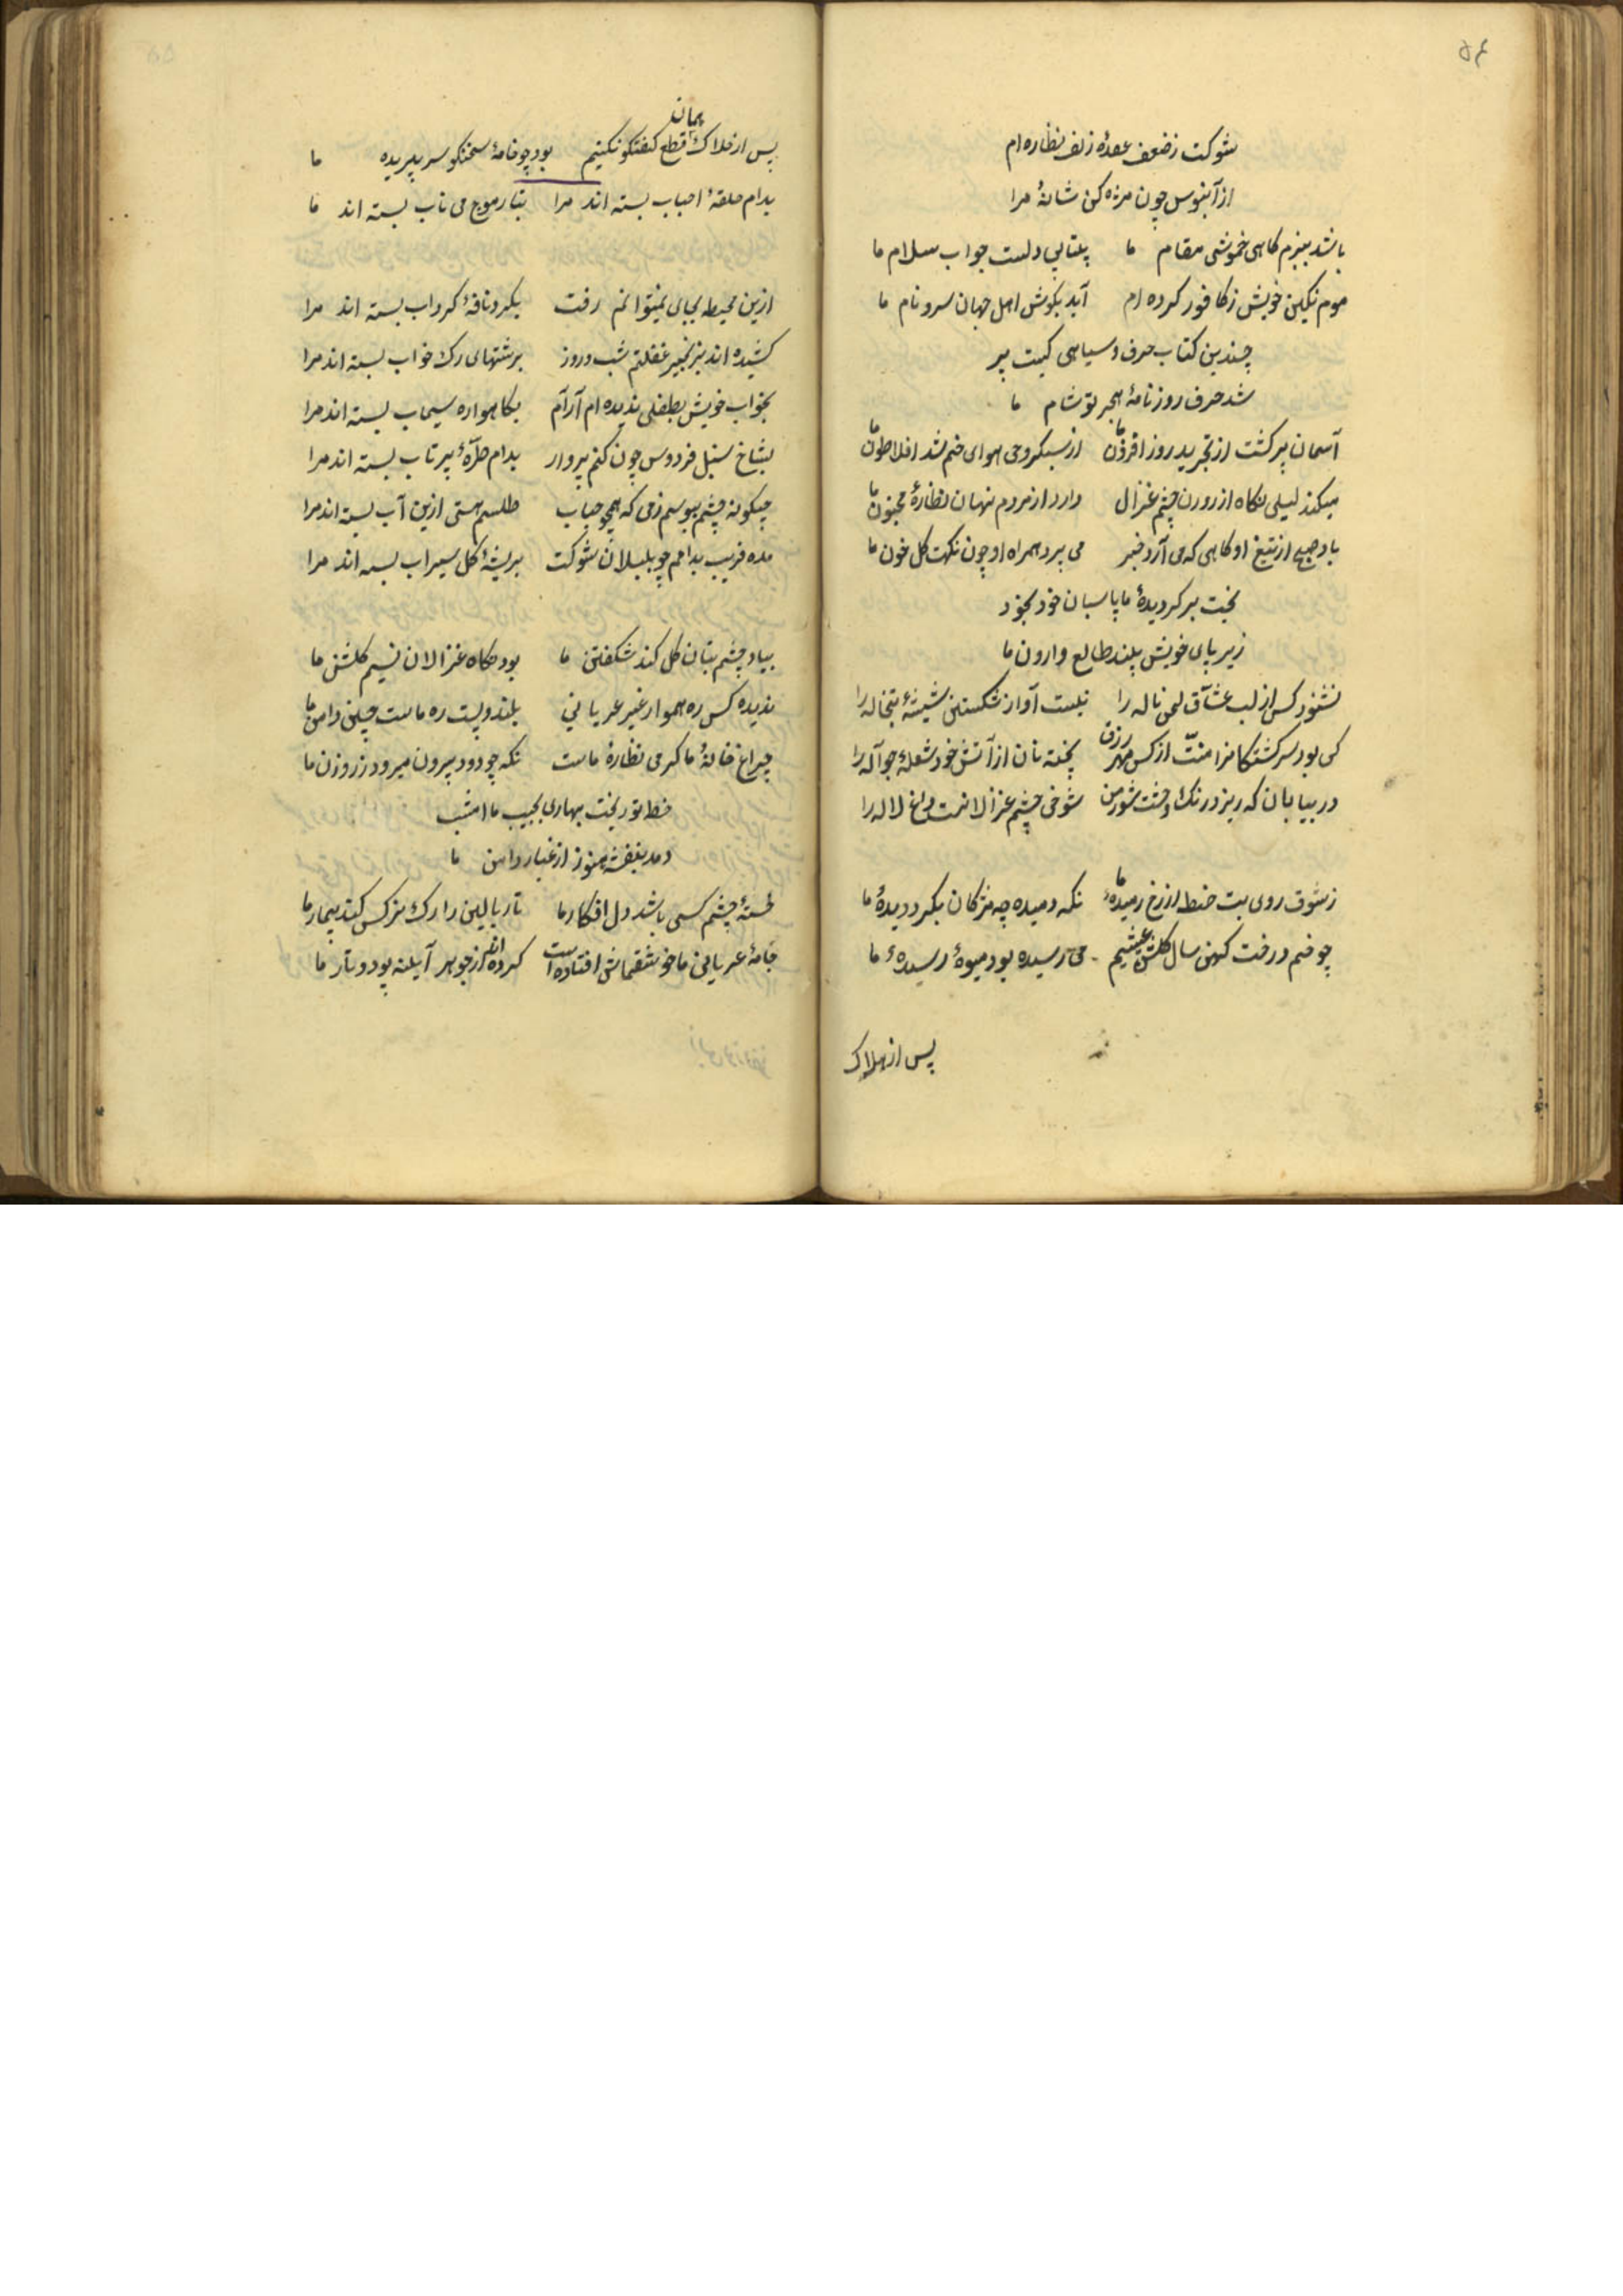 ۵۴
شوکت ز ضعف عقدهٔ زلف نظاره ام
از آبنوس چون مژه کن شانهٔ مرا
باشد ببزم کاهی خموشی مقام ما بیتابی دلست جواب سلام ما
موم نکین خویش ز کافور کرده ام آید بکوش اهل جهان سرد نام ما
چندین کتاب حرف و سیاهی کمیت پر
شد صرف روزنامهٔ هجر تو شام ما
آسمان پر کشت از تجرید روز افزون ما از سبکروحی هوای خم شد افلاطون ما
میکند لیلی نکاه از روزن چشم غزال دارد از مردم نهان نظارهٔ مجنون ما
باد صبح از تیغ او کاهی که می آرد خبر می پرد همراه او چون نکهت کل خون ما
بخت بر کردیدهٔ ما پاسبان خود بخود
زیر پای خویش بیند طالع وارون ما
نشنود کس از لب عشاق لحن ناله را نیست آواز شکستن شیشهٔ تبخاله را
کی بود سرکشتکانرا منت از کس بهر رزق پخته نان از آتش خود شعلهٔ جواله را
در بیابان که ریزد رنک وحشت شور من شوخی چشم غزالانست داغ لاله را
ز شوق روی بت خط از رخ دمیدهٔ ما نکه دمیده چو مژکان بکرد دیدهٔ ما
چو خم درخت کهن سال کلشن عیشیم می رسیده بود میوهٔ رسیدهٔ ما
پس از هلاک
پس از هلاک همان قطع کفتکو نکنیم بود چو خامهٔ سخنکو سر بریده ما
بدام حلقهٔ احباب بسته اند مرا بتار موج می ناب بسته اند ما
ازین محیط بجای نمیتوانم رفت بکرد نافهٔ کرداب بسته اند مرا
کشیده اند بزنجیر غفلتم شب و روز برشتهای رک خواب بسته اند مرا
بخواب خویش بطفلی ندیده ام آرام بکاهواره سیماب بسته اند مرا
بشاخ سنبل فردوس چون کنم پرواز بدام طرهٔ پرتاب بسته اند مرا
چکونه چشم بپوشم ز می که همچو حباب طلسم هستی ازین آب بسته اند مرا
مده فریب بدامم چو بلبلان شوکت بریشهٔ کل سیراب بسته اند مرا
بیاد چشم بتان کل کند شکفتن ما بود نکاه غزالان نسیم کلشن ما
ندیده کس ره هموار غیر عریانی بلند و پست ره ماست چین دامن ما
چراغ خانهٔ ما کرمی نظارهٔ ماست نکه چو دود بیرون میرود ز روزن ما
خط تو ریخت بهاری بجیب ما امشب
دمد بنفشه هنوز از غبار دامن ما
خستهٔ چشم کسی باشد دل افکار ما تار بالین را رک نرکس کند بیمار ما
جامهٔ عریانی ما خوشقماش افتاده است کرده اند از جوهر آیینه پود و تار ما